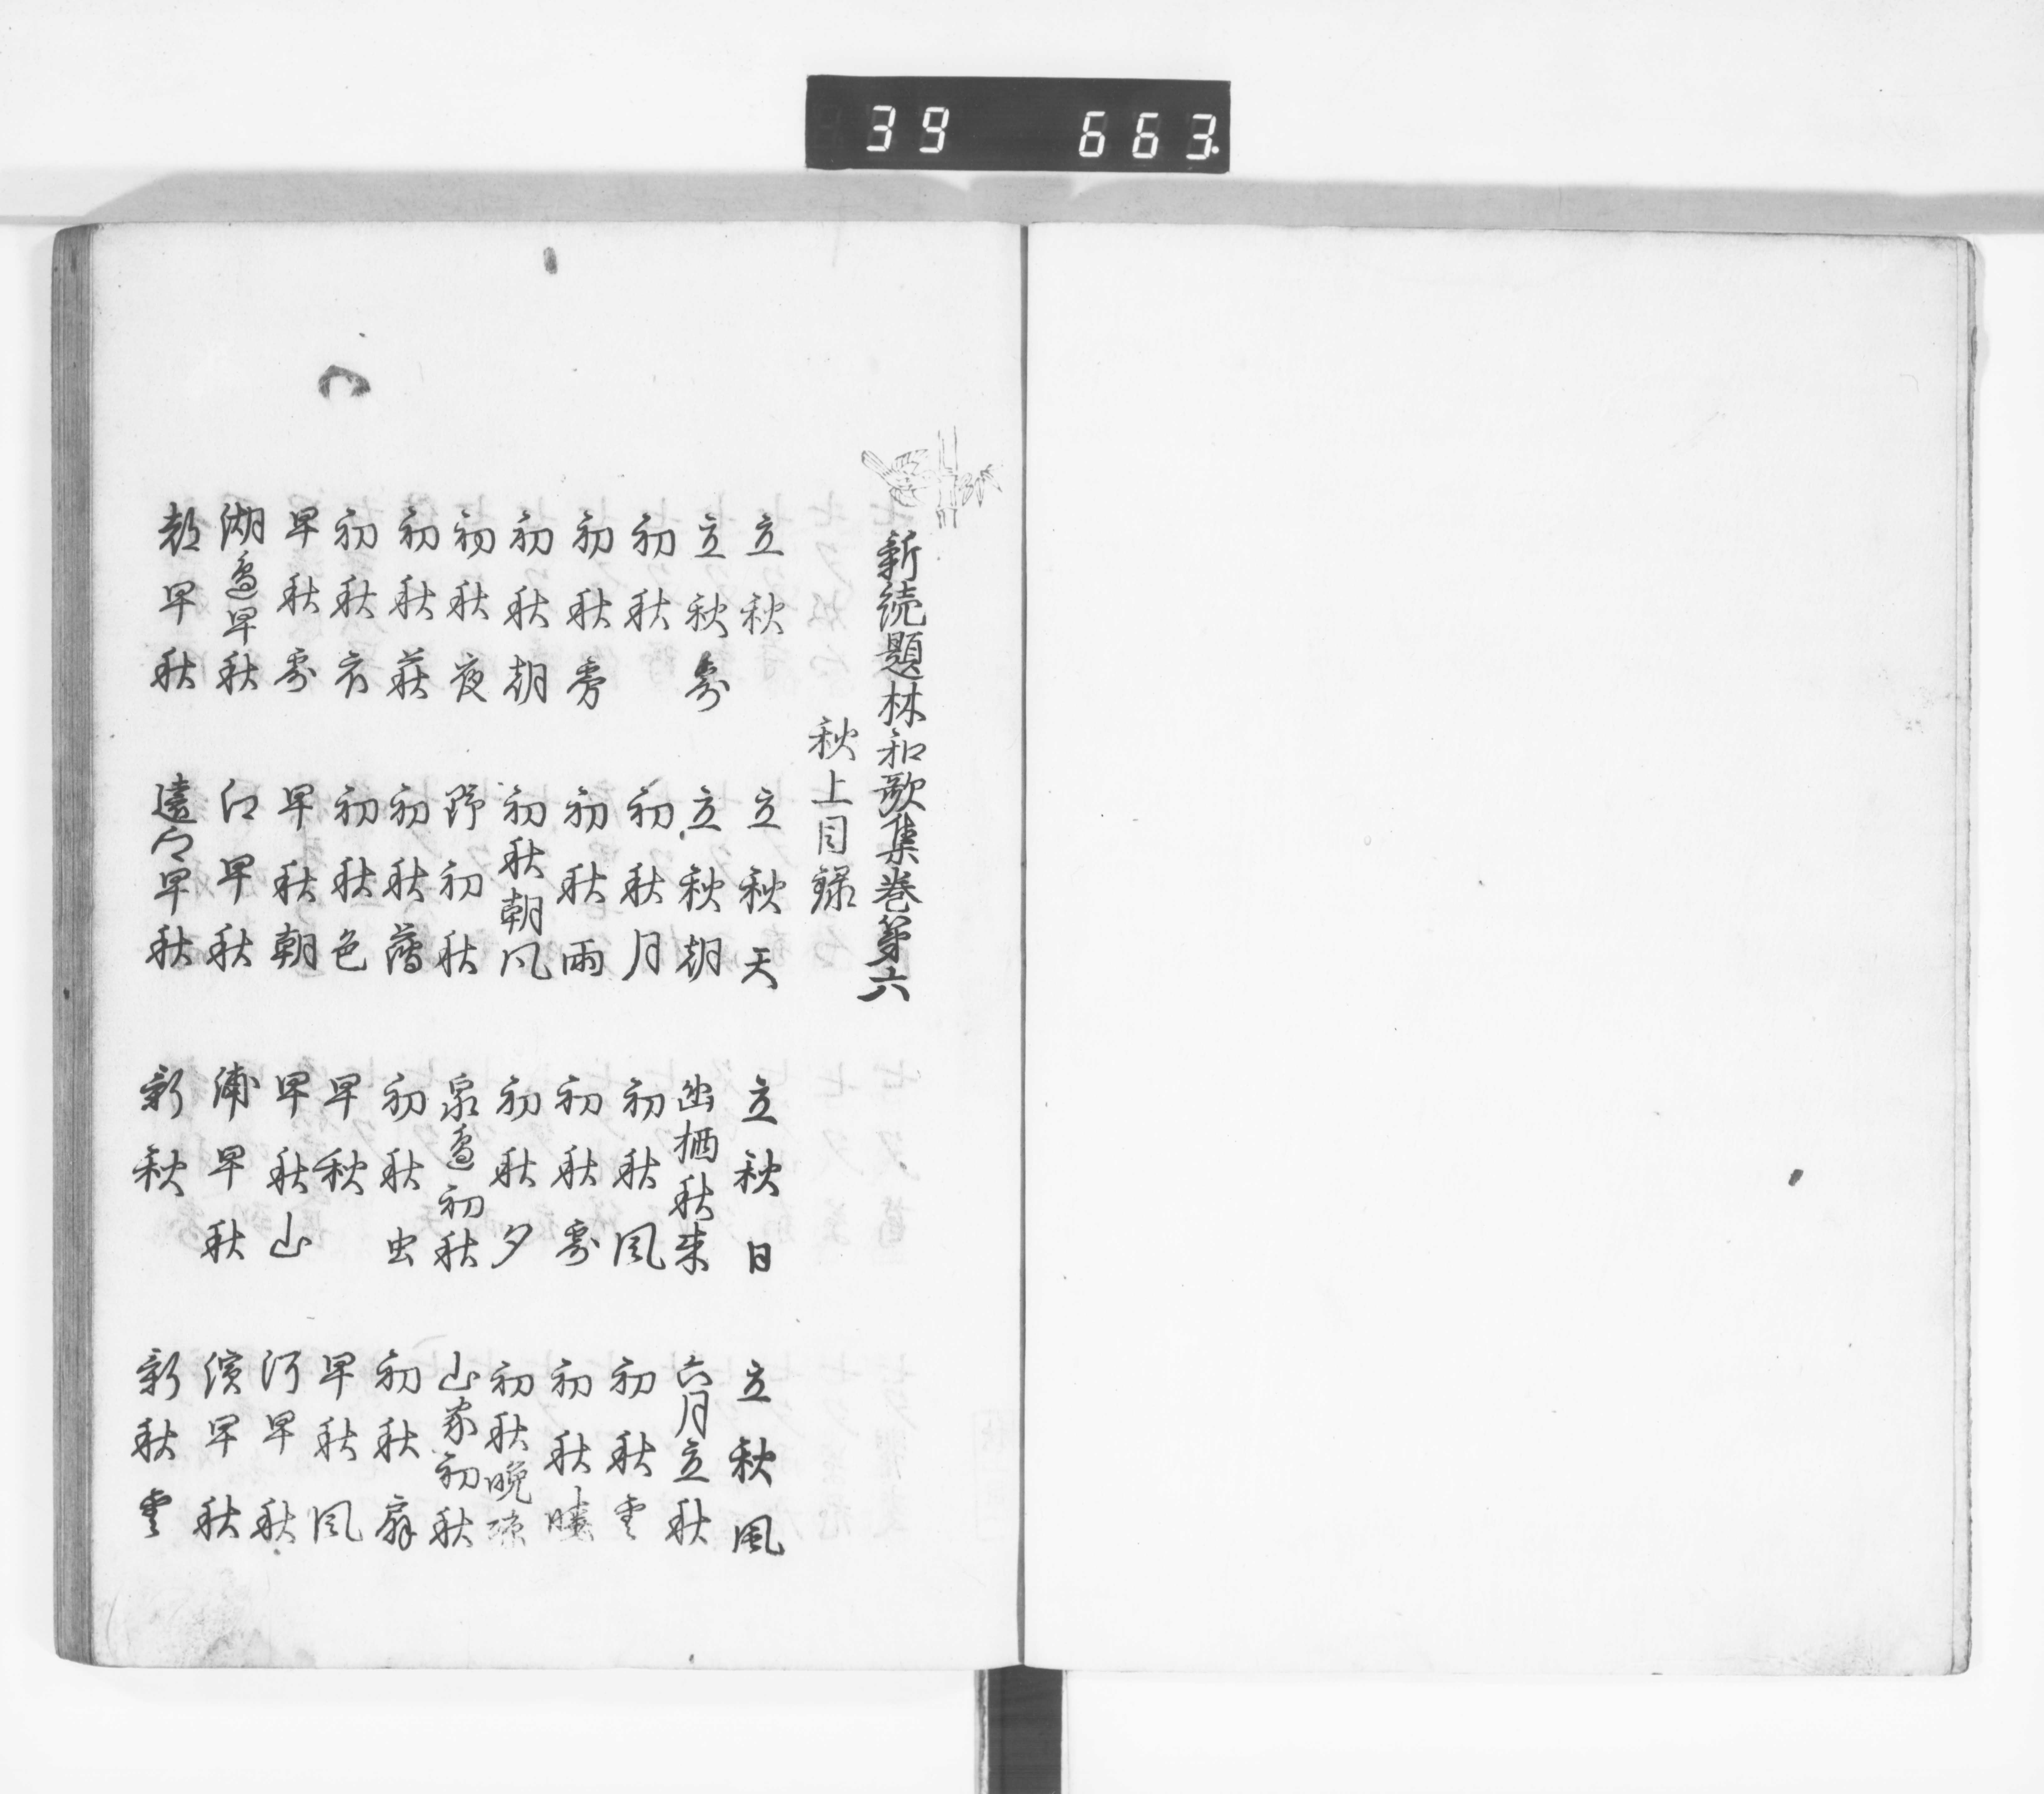 39 663
新続題林和歌集巻第六
秋上目録
立秋 立秋天 立秋日 立秋風
立秋露 立秋朝 幽栖秋来 六月立秋
初秋 初秋月 初秋風 初秋雲
初秋雨 初秋露
初秋朝 初秋朝風 初秋夕 初秋晩涼
初秋夜 野初秋 泉辺初秋 山家初秋
初秋荻 初秋萩 初秋虫 初秋扇
初秋衣 初秋色 早秋 早秋風
早秋露 早秋朝 早秋山 河早秋
湖辺早秋 江早秋 浦早秋 濱早秋
都早秋 遠山早秋 新秋 新秋雲